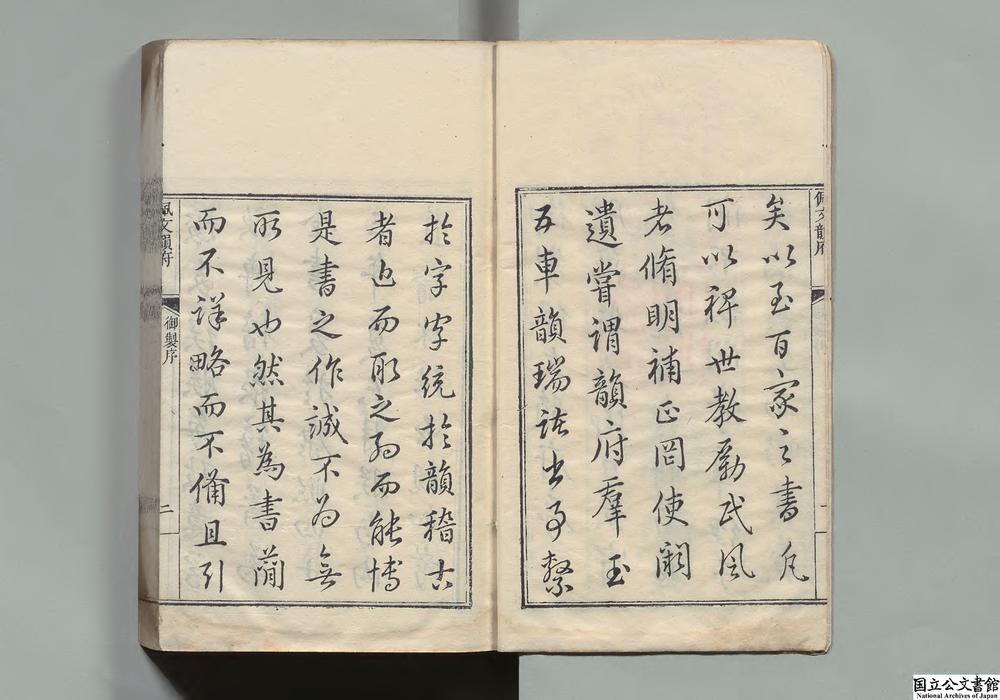 佩文韻府
矣以至百家之書凡
可以裨世教勵民風
者脩明補正罔使闕
遺嘗謂韻府羣玉
五車韻瑞諸書事繫
於字字統於韻稽古
者近而取之約而能博
是書之作誠不為無
所見也然其為書簡
而不詳略而不備且引
佩文韻府
御製序
二
国立公文書館
National Archives of Japan